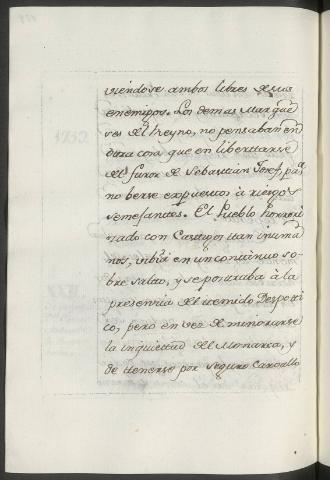 viendose ambos libres de sus
enemigos. Los demas Marque
ses del Reyno, no pensaban en
otra cosa que en libertarse
del furor de Sebastian Josef, pa.
no berse expuestos à riesgos
semejantes. El Pueblo horrori
zado con Castigos tan inuma
nos, vibia en un continuo so
bre salto, y se postraba à la
presencia del temido Despoti
co, pero en vez de minorarse
la inquietud del Monarca, y
de tenerse por seguro Carvallo